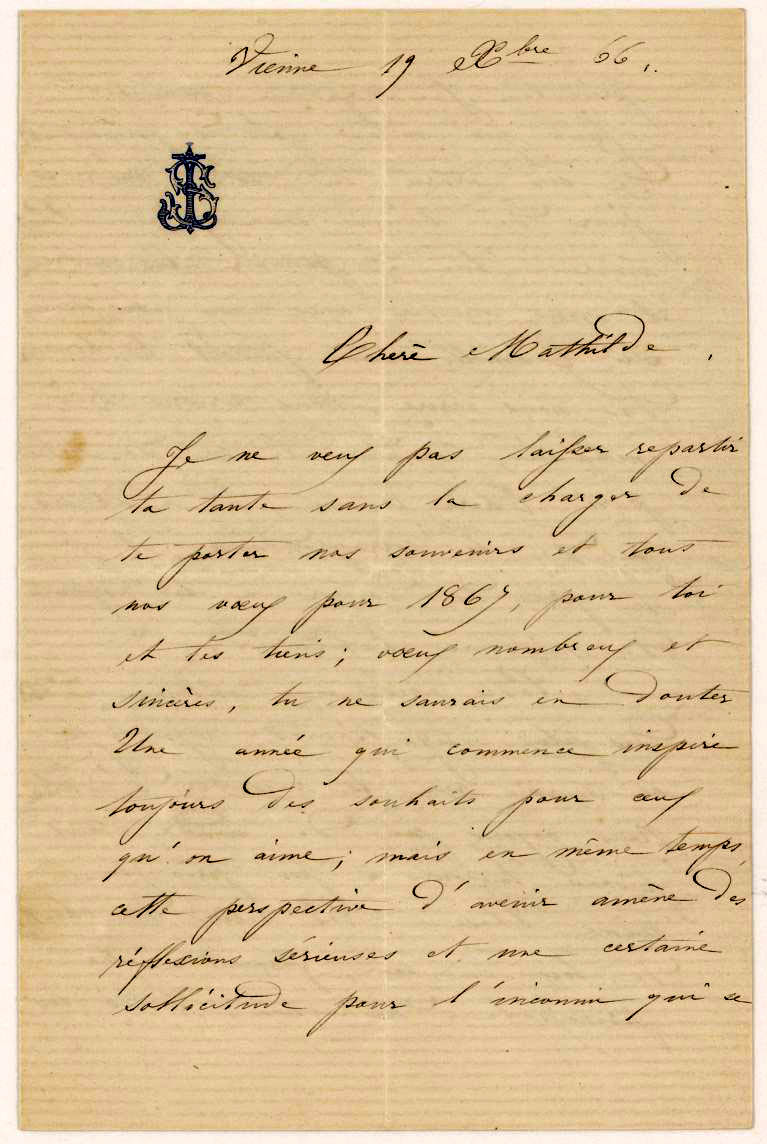 Vienne 19 Xbre 66.
JS
Chère Mathilde,
Je ne veux pas laisser repartir
ta tante sans la charger de
te porter nos souvenirs et tous
nos vœux pour 1867, pour toi
et les tiens; vœux nombreux et
sincères, tu ne saurais en douter
Une année qui commence inspire
toujours des souhaits pour ceux
qu'on aime; mais en même temps,
cette perspective d'avenir amène des
réflexions sérieuses et une certaine
sollicitude pour l'inconnu qui se